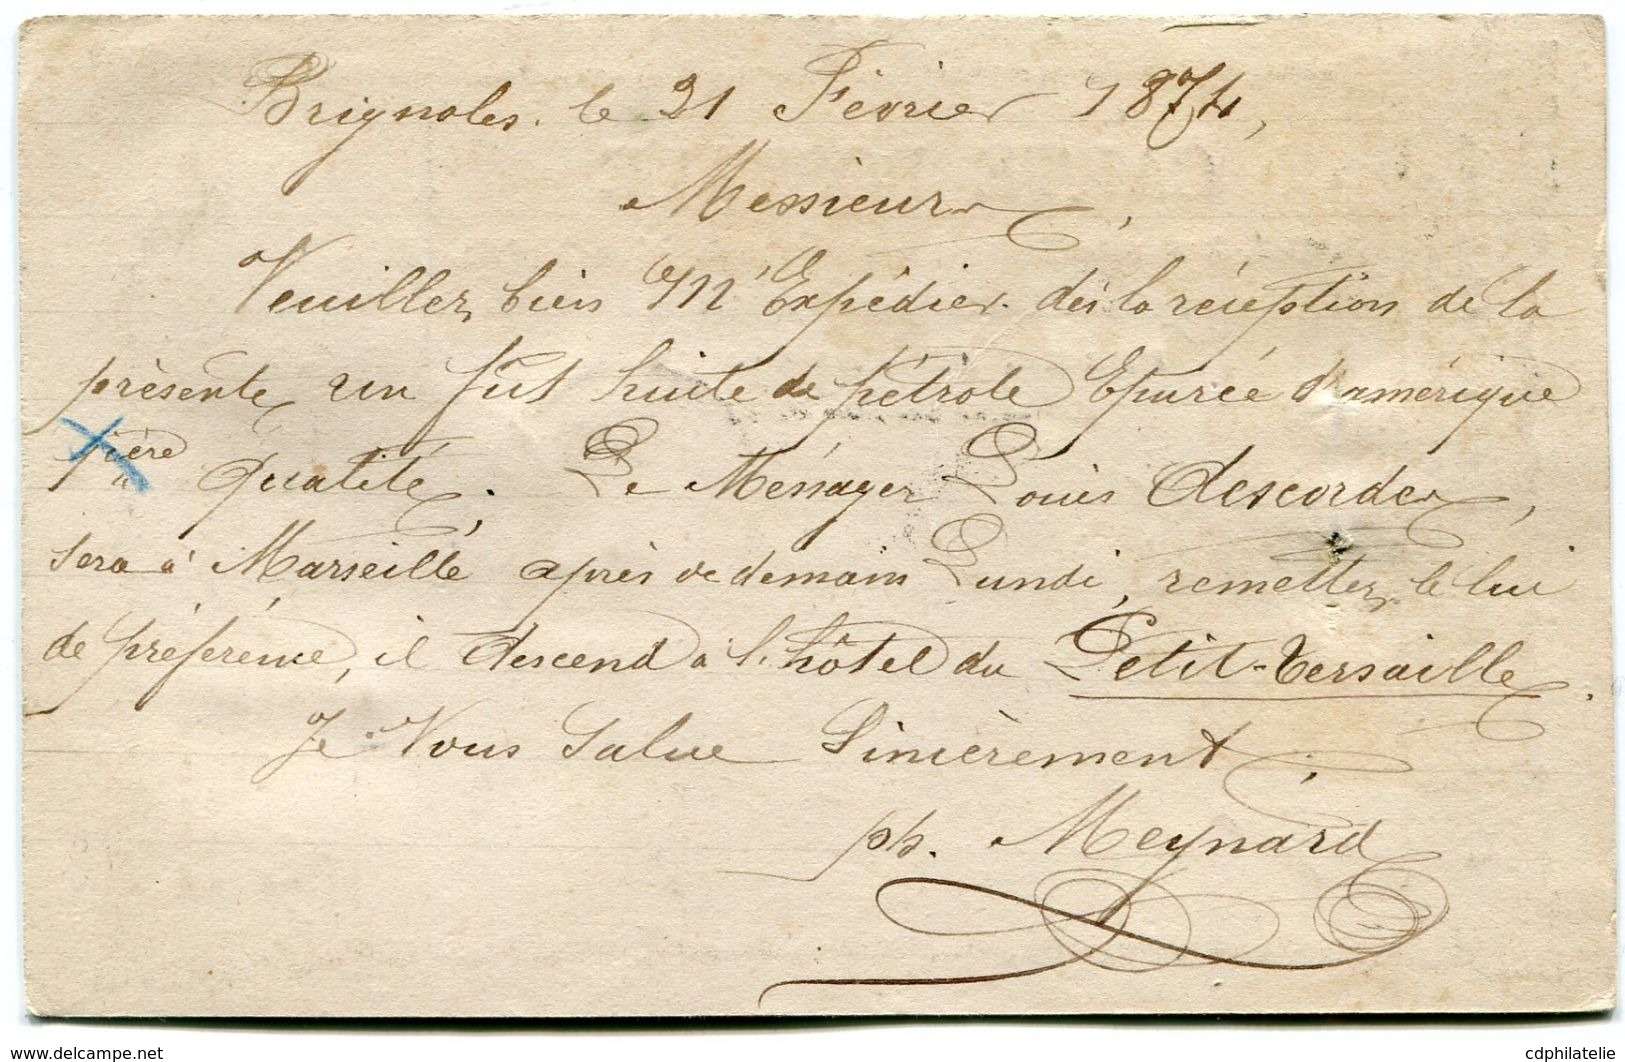 Brignoles. le 21 Février 1874,
Messieurs,
Veuillez bien M'Expédier. dès la réception de la
présente un fût huile de pétrole Epurée d'amérique
1ère Qualité. Le Messager Louis descordes,
sera à Marseille après de demain Lundi, remettez le lui
de préférence, il descend à l'hôtel du Petit-Versaille.
Je Vous Salue Sincèrement.
ph. Meynard
www.delcampe.net
cdphilatelie